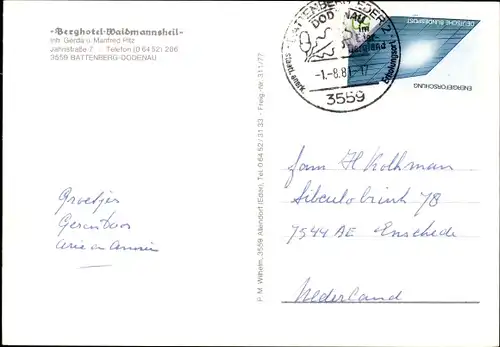 -Berghotel-Waidmannsheil-
Inh. Gerda u. Manfred Pilz
Jahnstraße 7 Telefon (0 64 52) 296
3559 BATTENBERG-DODENAU
BATTENBERG (EDER) 2
DODENAU
-1.-8.8
-17
3559
staatl. anerk.
Erholungsort
DEUTSCHE BUNDESPOST
ENERGIEFORSCHUNG
P. M. Wilhelm, 3559 Allendorf (Eder), Tel. 0 64 52 / 31 33 - Freig.-nr. 311/77
Groetjes
Arie en Annie
Fam H Kolkman
Sibculobrink 78
7544 AE Enschede
Nederland